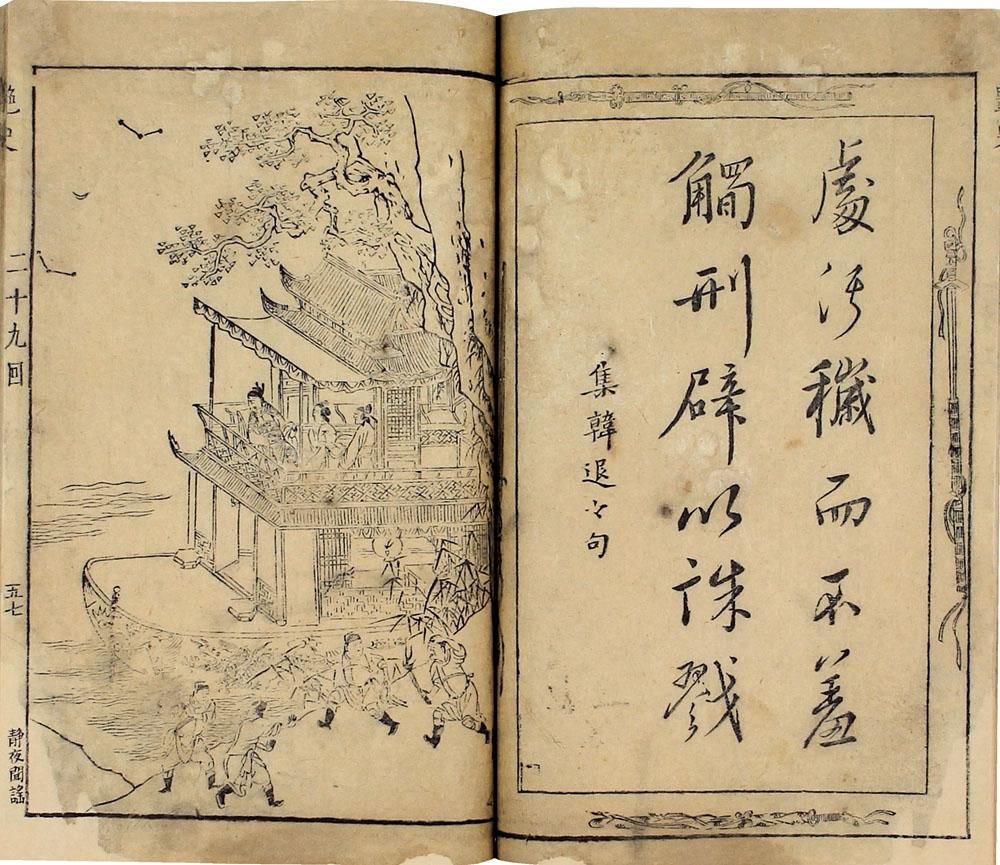 處汚穢而不羞
觸刑辟以誅戮
集韓退之句
艶史
二十九回
五七
靜夜聞謠